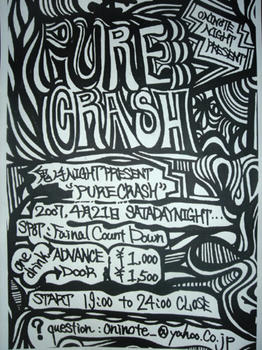 PURE
CRASH
ONINOTE
NIGHT
PRESENT
NIGHT PRESENT
"PURE CRASH"
2007. 4月21日 SATADAY NIGHT...
SPOT: Joinal Count Down
one drink
ADVANCE ¥1,000
DOOR ¥1,500
START 19:00 to 24:00 CLOSE
? question : oninote_@yahoo.co.jp